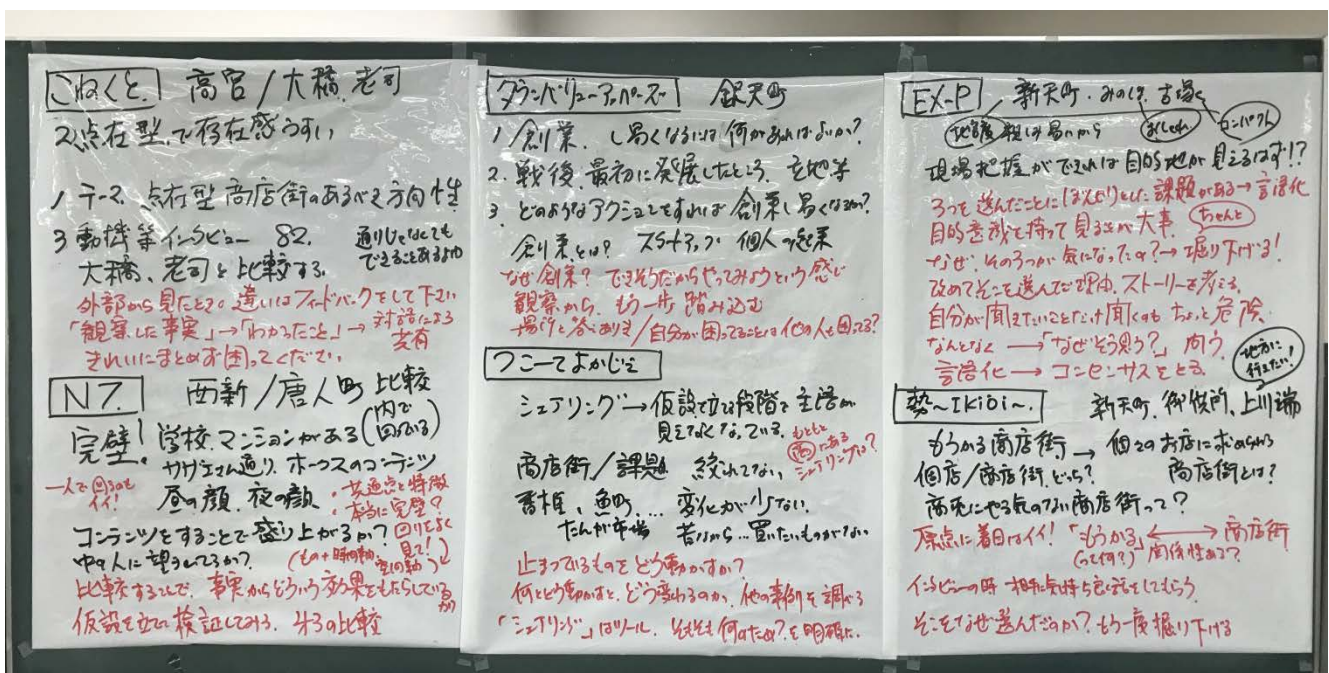 こねくと. 高宮/大橋, 老司
2. 点在型で存在感うすい
1 テーマ. 点在型商店街のあるべき方向性
3 動機等インタビュー 82.
通りじゃなくても
できることあるよね
大橋、老司と比較する.
外部から見たとき。違いはフィードバックをして下さい
「観察した事実」→「わかったこと」→対話による
共有
きれいにまとめず困ってください
N7. 西新/唐人町 比較
完璧! 学校. マンションがある(内で
回っている)
サザエさん通り. ホークスのコンテンツ
一人で回るのも
イイ!
昼の顔. 夜の顔.
・共通点と特徴
・本当に完璧?
コンテンツをすることで盛り上がるか?
回りをよく
見て!
中の人に望まれてるか?
比較することで、事実からどういう効果をもたらしている
仮設を立て検証してみる. 4つの比較
タウンバリューアッパーズ 銀天町
1 創業. し易くなるには何があればよいか?
2. 戦後, 最初に発展したところ. 立地等
3 どのようなアクションをすれば創業し易くなるか?
創業とは? スタートアップ 個人の起業
なぜ創業? できそうだからやってみようという感じ
観察から. もう一歩踏み込む
場所と答ありき/自分が困ってることは他の人も困ってる?
つこーてよかじぇ
シェアリング→仮設を立てる段階で主語が
見えなくなっている.
もともと
商にある
シェアリングは?
商店街/課題 絞れてない
香椎、魚町... 変化が少ない.
たんが市場 昔ながら...買いたいものがない
止まっているものをどう動かすか?
何をどう動かすと、どう変わるのか. 他の事例を調べる
「シェアリング」はツール. そもそも何のため?を明確に.
EX-P 新天町. みのしま. 吉塚
地下鉄
おしゃれ
コンパクト
現場把握ができれば目的地が見えるはず!?
3つを選んだことにぼんやりとした課題がある→言語化
目的意識を持って見ることが大事.
ちゃんと
なぜ、その3つが気になったの?→掘り下げる!
改めてそこを選んだ理由. ストーリーを考える.
自分が聞きたいことだけ聞くのもちょっと危険.
なんとなく→「なぜそう思う?」問う.
言語化→コンセンサスをとる.
地方に
行きたい!
勢~IKiOi~. 新天町. 御供所, 上川端
もうかる商店街→個々のお店に求められる
個店/商店街, どっち? 商店街とは?
商売にやる気のない商店街って?
原点に着目はイイ! 「もうかる」←→商店街
(って何?) 関係性ある?
インタビューの時 相手に気持ち良く話をしてもらう.
そこをなぜ選んだのか? もう一度掘り下げる